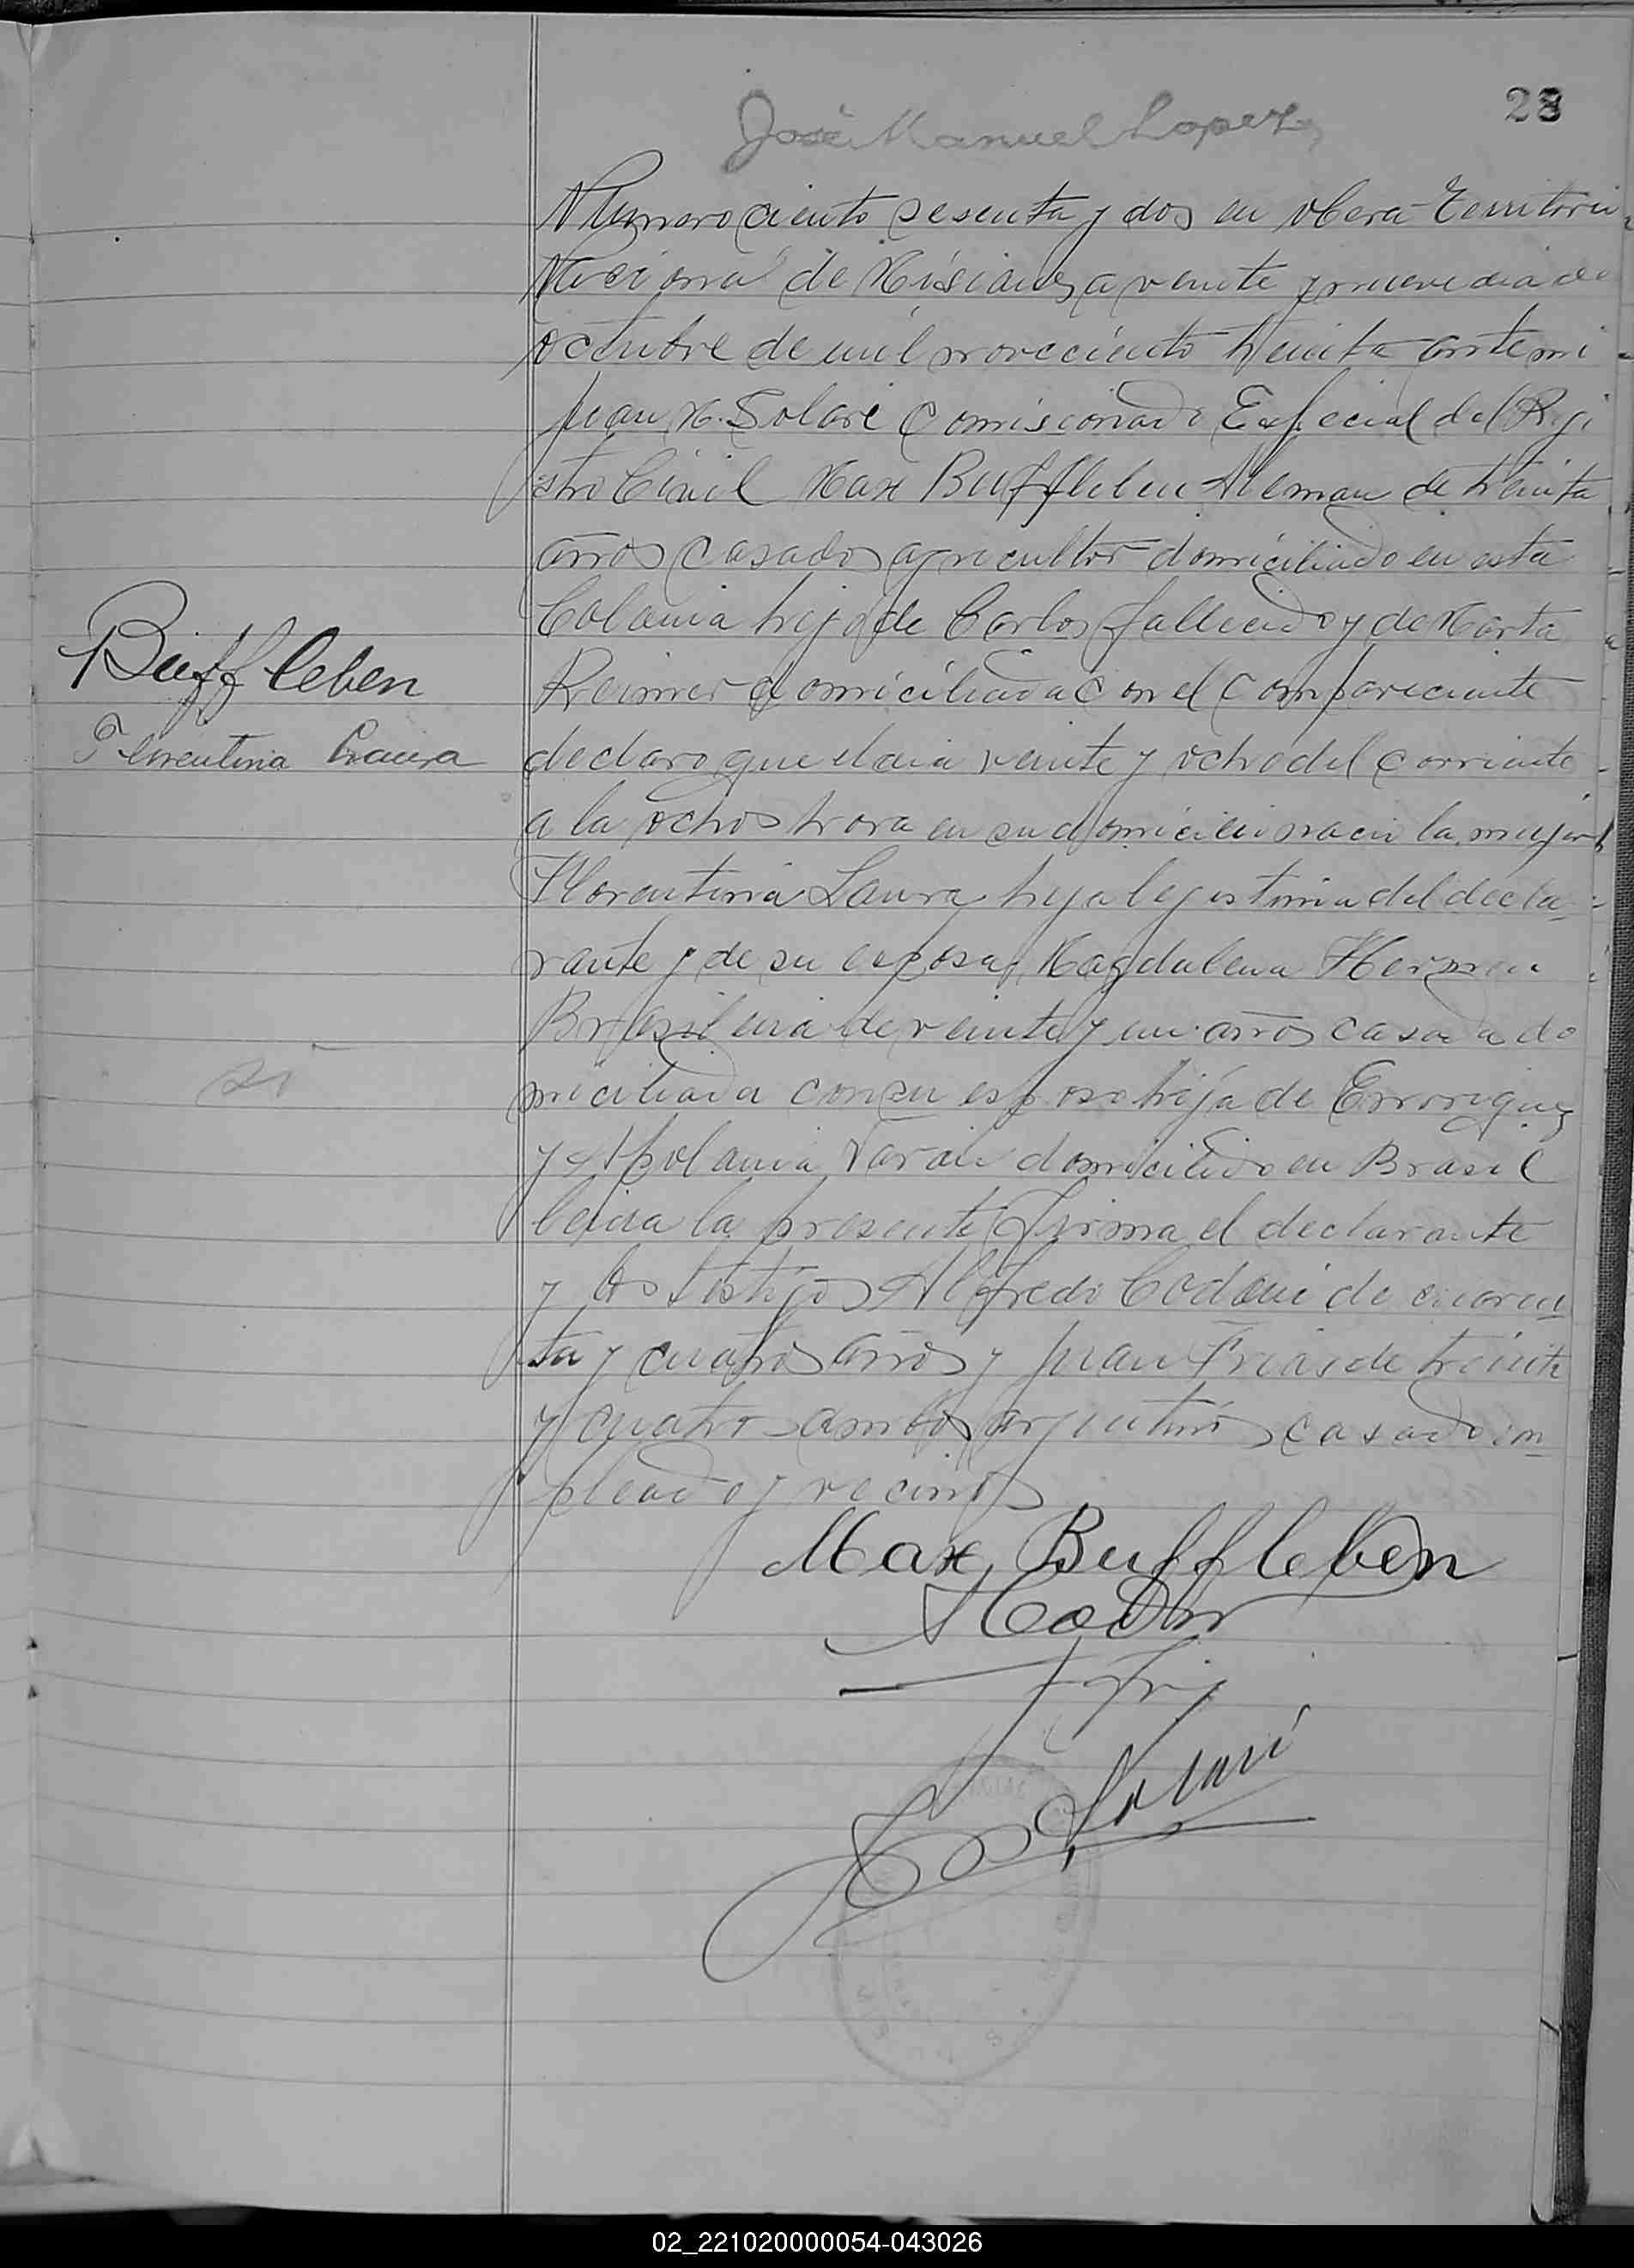 28
José Manuel Lopez
Numero ciento sesenta y dos en obera Territorio
Nacional de Misiones a veinte y nueve dia de
octubre de mil novecientos treinta ante mi
Juan M. Solari Comisionado Especial del Regi
stro Civil Max Buffleben Aleman de treinta
años casados agricultor domiciliado en esta
Colonia hijo de Carlos fallecido y de Marta
Reimer domiciliada con el compareciente
declaro que el dia veinte y ocho del corriente
a la ochos hora en su domicilio nacio la mujer
Florentina Laura hija legistima del decla-
rante y de su esposa Magdalena
Brasilena de veinte y un años casada do
miciliada con su esposo hija de Enrrique
y Apolonia domicilido en Brasil
leida la presente firma el declarante
y los testigos Alfredo Codoni de cuaren
ta y cuatros años y Juan Frias de treinta
y cuatro ambos argentinos casado em
pleado y vecinos
Buffleben
Florentina Laura
si
Max Buffleben
Solari
02_221020000054-043026